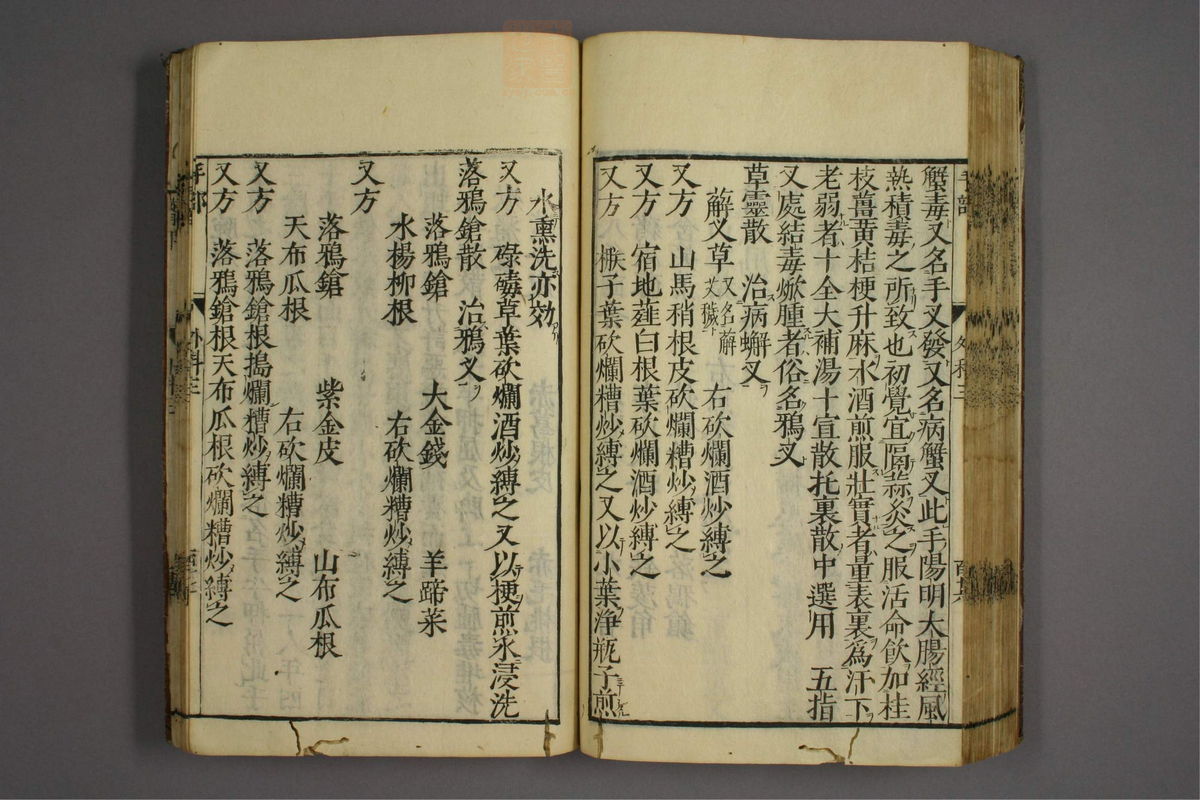 蟹毒又名手叉發又名病蟹叉此手陽明大腸經風
熱積毒之所致也初覺宜隔蒜灸之服活命飲加桂
枝薑黃桔梗升麻水酒煎服壯實者量表裏爲汗下
老弱者十全大補湯十宣散托裏散中選用　五指
叉處結毒焮腫者俗名鴉叉
草靈散　治病蠏叉
薢叉草 又名薢艾穢　右砍爛酒炒縛之
又方　山馬稍根皮砍爛糟炒縛之
又方　宿地薤白根葉砍爛酒炒縛之
又方　楸子葉砍爛糟炒縛之又以小葉淨瓶子煎
水熏洗亦効
又方　碌礴草葉砍爛酒炒縛之又以梗煎水浸洗
落鴉鎗散　治鴉叉
落鴉鎗　大金錢　羊蹄菜
水楊柳根　右砍爛糟炒縛之
又方
落鴉鎗　紫金皮　山布瓜根
天布瓜根　右砍爛糟炒縛之
又方　落鴉鎗根搗爛糟炒縛之
又方　落鴉鎗根天布瓜根砍爛糟炒縛之
手部　外科三